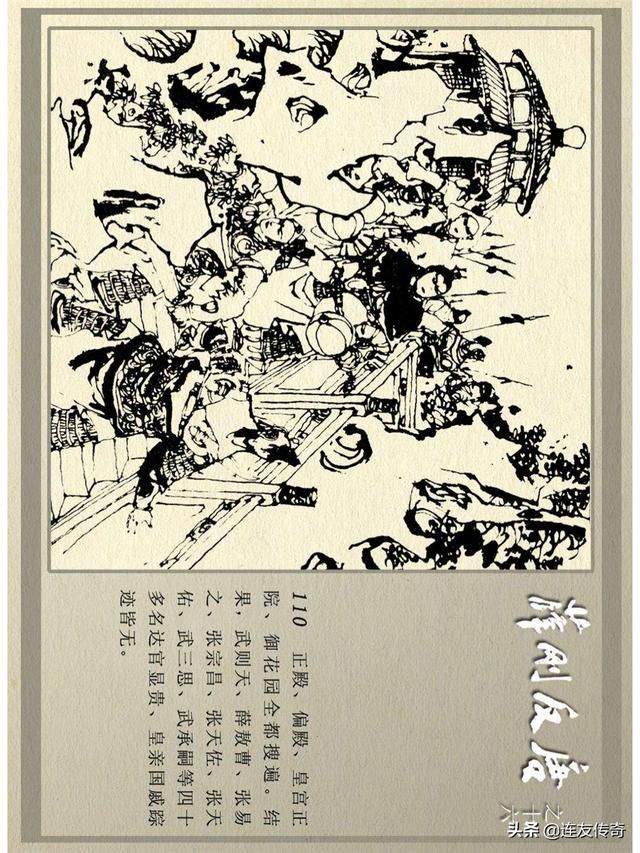 薛剛反唐
之十六
110 正殿、偏殿、皇宫正
院、御花园全都搜遍。结
果，武则天、薛敖曹、张易
之、张宗昌、张天佐、张天
佑、武三思、武承嗣等四十
多名达官显贵、皇亲国戚踪
迹皆无。
头条 @连友传奇